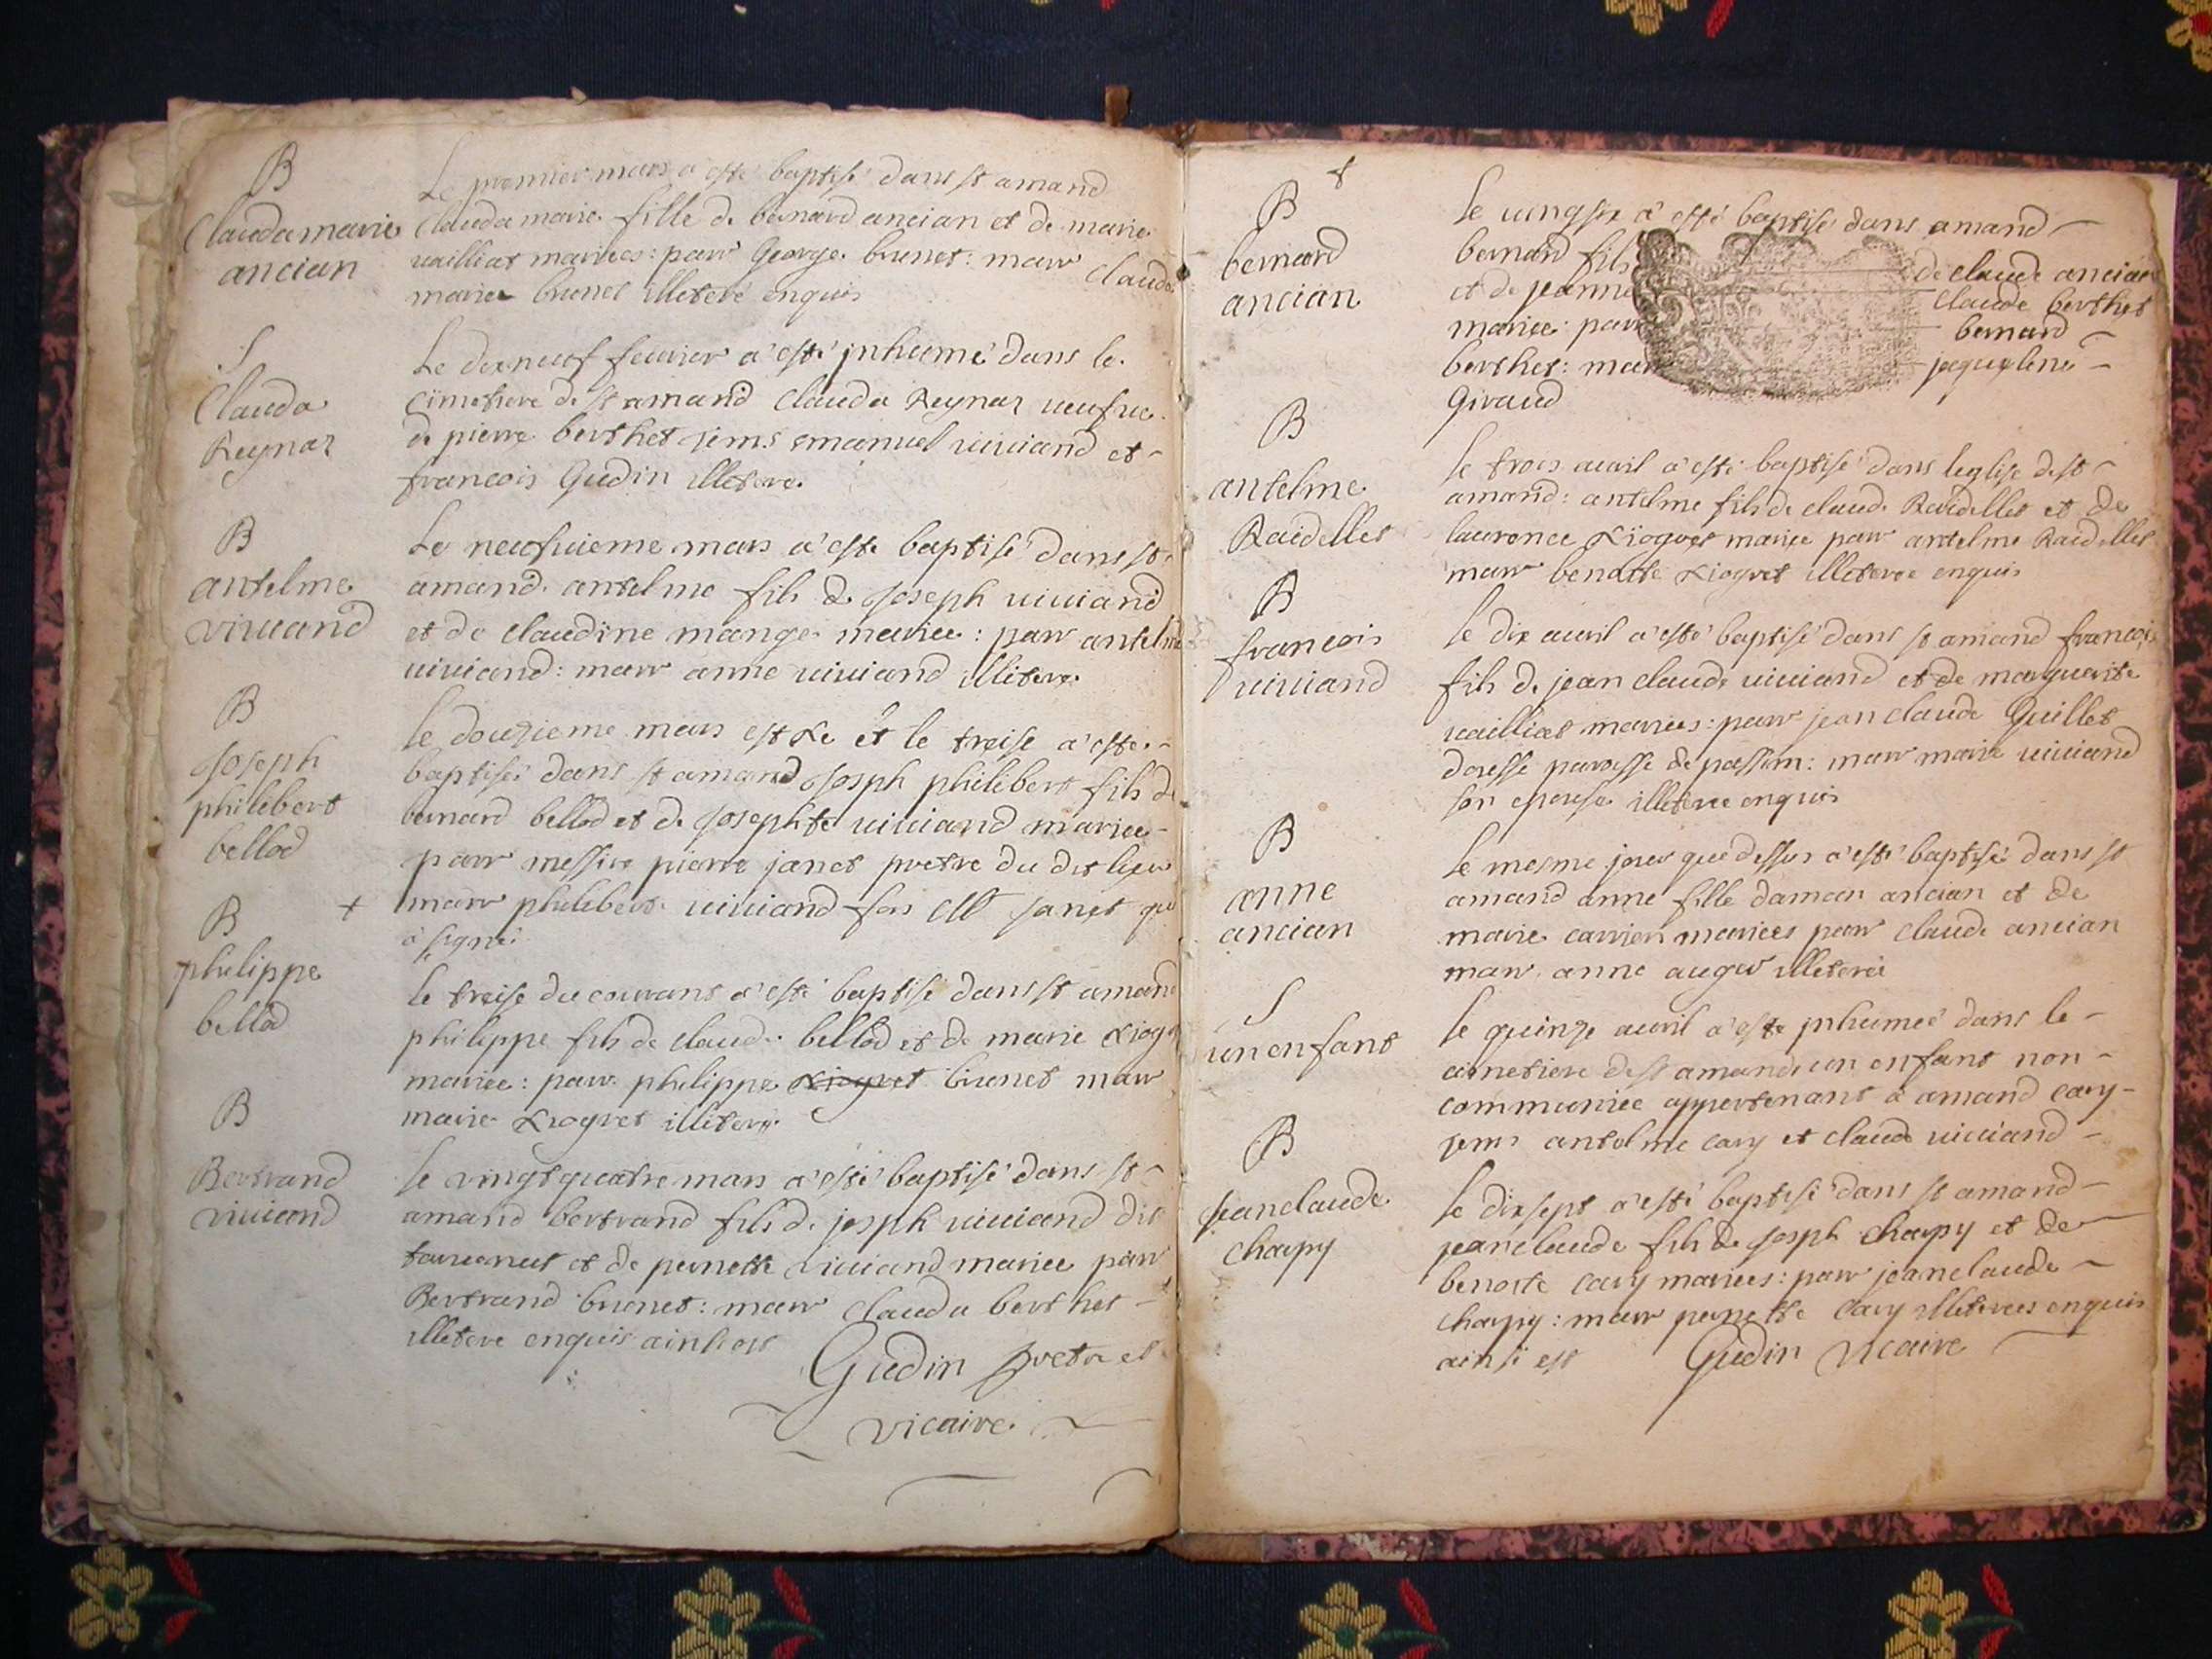 B
Claudamarie
ancian
Le premier mars a esté baptisé dans st amand
Claudamarie fille de bernard ancian et de marie
vailliat mariees: parr George brunet: marr Claude
marie brunet illeteré enquis
S
Clauda
Reynaz
Le dixneuf feuvier a esté jnhumé dans le
cimetiere de st amand Clauda Reynaz veufue
de pierre berthet jems emanuel viuiand et
francois Gudin illetere
B
antelme
viuiand
Le neufuieme mars a esté baptisé dans st
amand antelme fils de Joseph viuiand
et de claudine mange mariee: parr antelme
viuiand: marr anne viuiand illitere
B
Joseph
philebert
bellod
le douzieme mars est né et le treise a esté
baptisé dans st amand Josph philibert fils de
bernard bellod et de Josephte viuiand mariee
parr messire pierre janet pretre du dit lieu
marr philebert viuiand janet qui
a signé
B +
philippe
bellod
le treise du courant a esté baptisé dans st amand
philippe fils de claude bellod et de marie
mariee: parr philippe brunet marr
marie illitere
B
Bertrand
viuiand
le vingtquatre mars a esté baptisé dans st
amand bertrand fils de josph viuiand dit
et de pernette viuiand mariee parr
Bertrand brunet: marr clauda berthet
illetere enquis ainsi est
Gudin pretre et
vicaire
B
bernard
ancian
le vingsix a esté baptisé dans amand
bernard fils de claude ancian
et de jeanne claude berthet
mariee: parr bernard
berthet: marr jaquelene
Giraud
B
antelme
Raidellet
le trois avril a esté baptisé dans leglise de st
amand: antelme fils de claude Raidellet et de
laurence mariee parr antelme Raidellet
marr benoite illeteree enquis
B
francois
viuiand
le dix avril a esté baptisé dans st amand francois
fils de jean claude viuiand et de marguerite
vailliat mariees: parr jean claude Guillet
paroisse de passin: marr marie viuiand
son epouse illeteree enquis
B
anne
ancian
le mesme jour que dessus a esté baptisé dans st
amand anne fille daman ancian et de
marie carrier mariees parr claude ancian
marr anne auger illeteree
S
un enfant
le quinze avril a esté jnhumeé dans le
cimetiere de st amand un enfant non
communiee appertenant a amand cary
jems antelme cary et claude viuiand
B
jeanclaude
chapy
le dixsept a esté baptisé dans st amand
jeanclaude fils de Josph chapy et de
benoite cary mariees: parr jeanclaude
chapy: marr pernette cary illeterees enquis
ainsi est Gudin vicaire